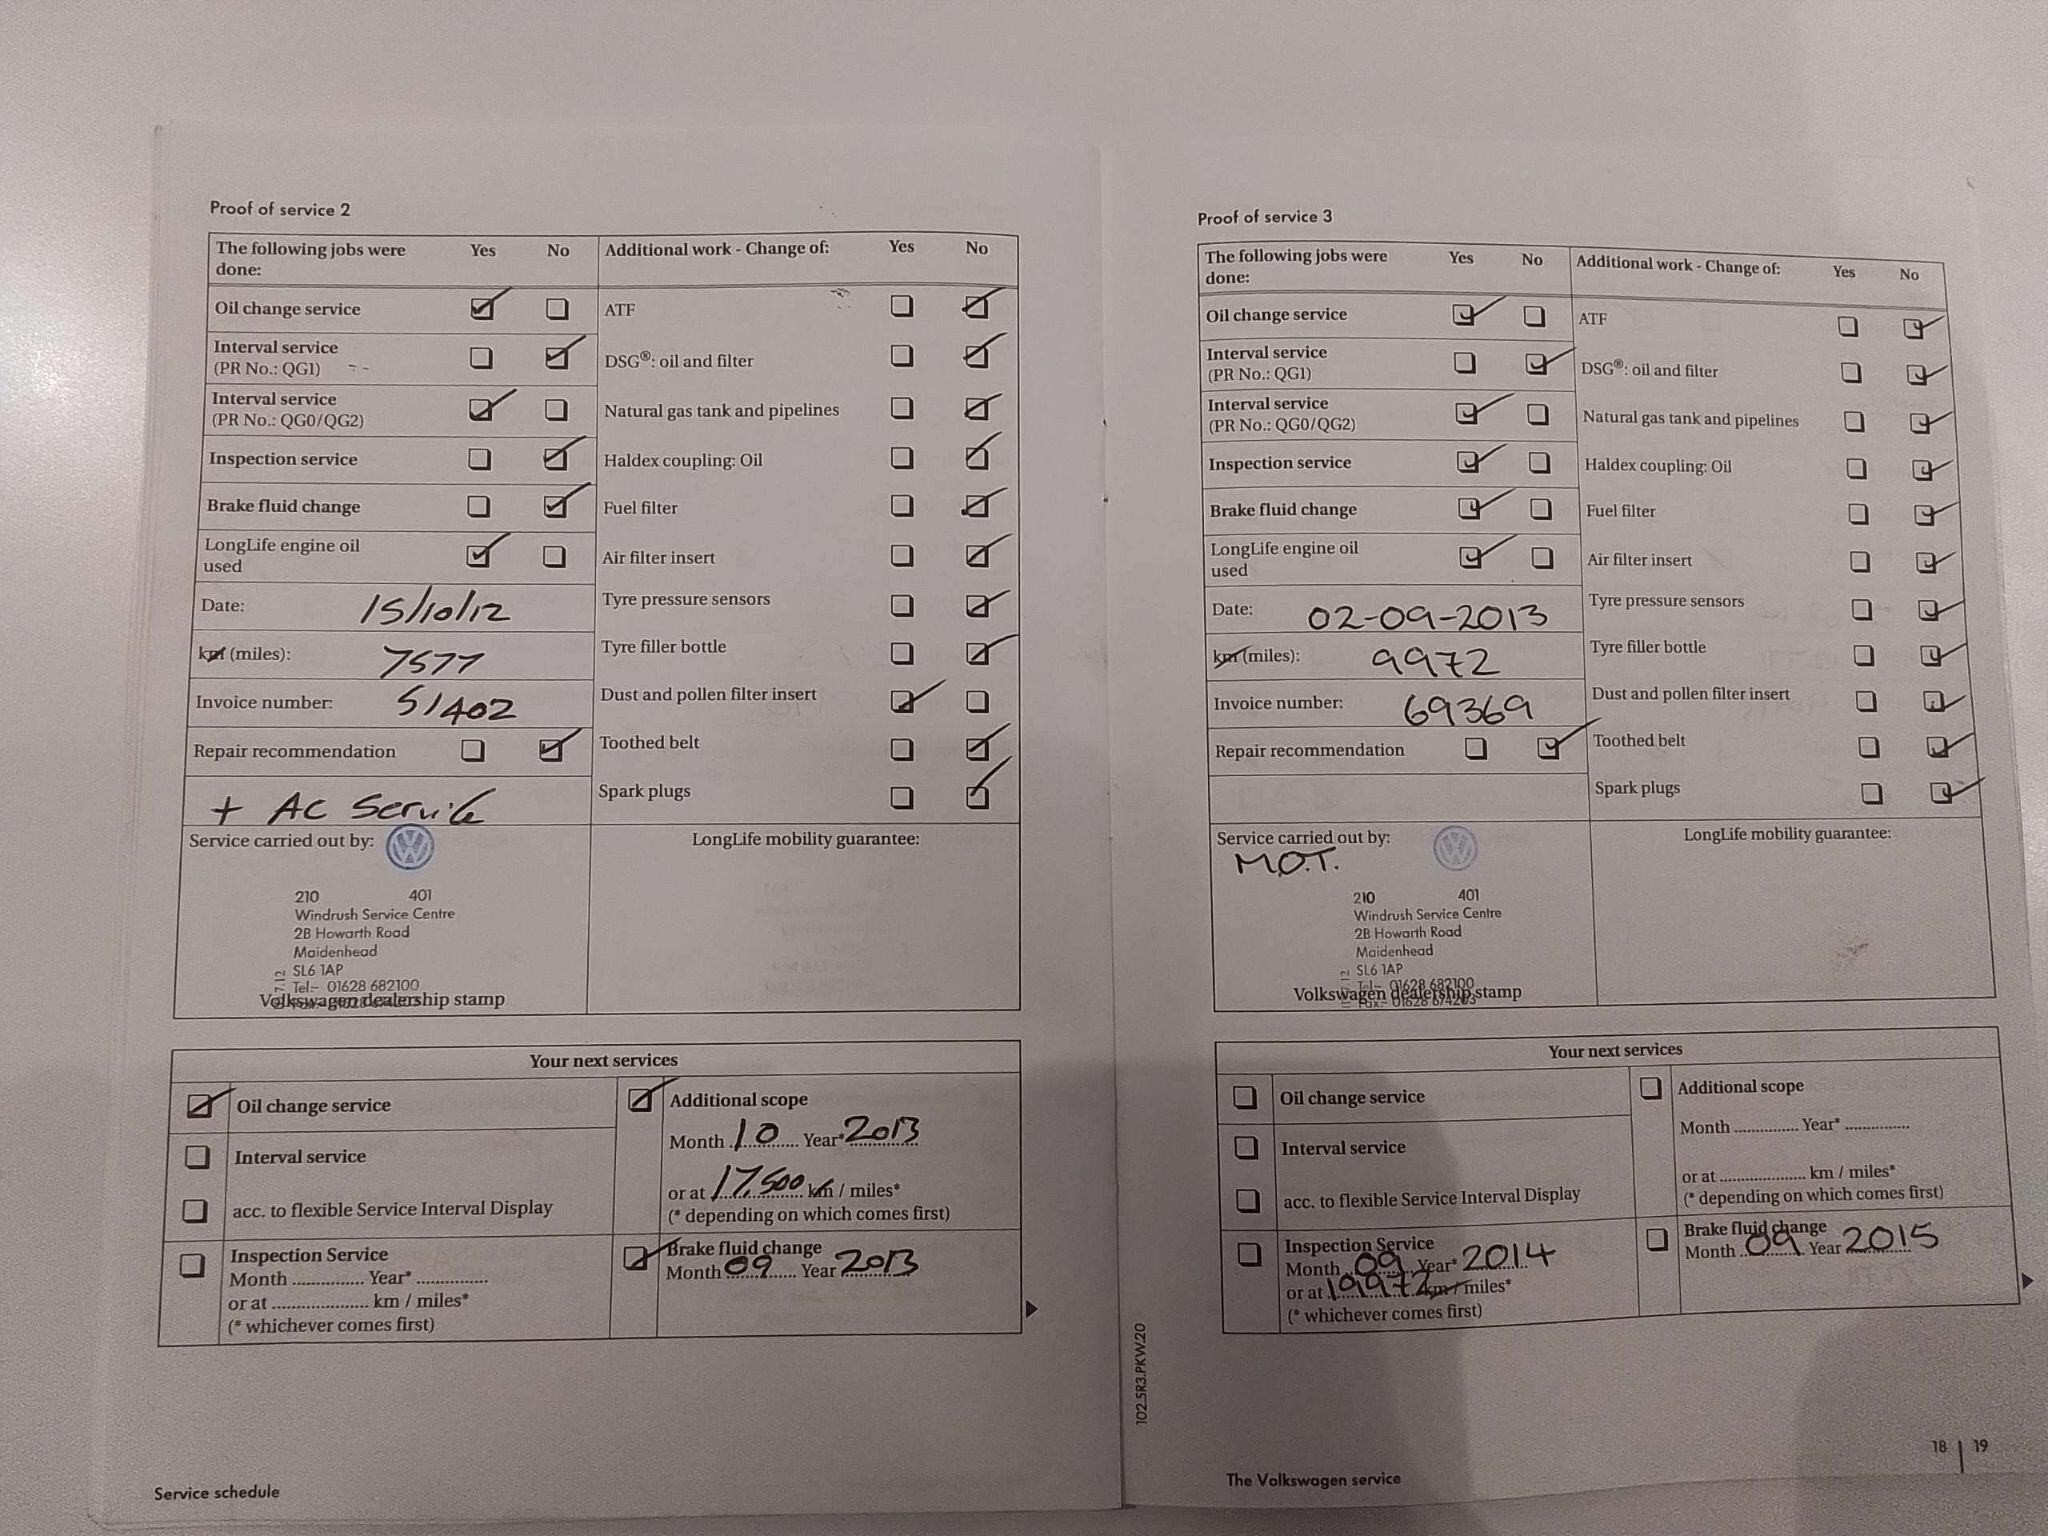 Proof of service 2
The following jobs were done: Yes No
Oil change service
Interval service
(PR No.: QG1)
Interval service
(PR No.: QG0/QG2)
Inspection service
Brake fluid change
LongLife engine oil
used
Date: 15/10/12
km (miles): 7577
Invoice number: 51402
Repair recommendation
+ AC Service
Additional work - Change of: Yes No
ATF
DSG®: oil and filter
Natural gas tank and pipelines
Haldex coupling: Oil
Fuel filter
Air filter insert
Tyre pressure sensors
Tyre filler bottle
Dust and pollen filter insert
Toothed belt
Spark plugs
Service carried out by:
210 401
Windrush Service Centre
2B Howarth Road
Maidenhead
SL6 1AP
Tel:- 01628 682100
Volkswagen dealership stamp
LongLife mobility guarantee:
Your next services
Oil change service
Interval service
acc. to flexible Service Interval Display
Inspection Service
Month Year*
or at km / miles*
(* whichever comes first)
Additional scope
Month 10 Year* 2013
or at 17,500 km / miles*
(* depending on which comes first)
Brake fluid change
Month 09 Year 2013
Service schedule
Proof of service 3
The following jobs were done: Yes No
Oil change service
Interval service
(PR No.: QG1)
Interval service
(PR No.: QG0/QG2)
Inspection service
Brake fluid change
LongLife engine oil
used
Date: 02-09-2013
km (miles): 9972
Invoice number: 69369
Repair recommendation
Additional work - Change of: Yes No
ATF
DSG®: oil and filter
Natural gas tank and pipelines
Haldex coupling: Oil
Fuel filter
Air filter insert
Tyre pressure sensors
Tyre filler bottle
Dust and pollen filter insert
Toothed belt
Spark plugs
Service carried out by:
M.O.T.
210 401
Windrush Service Centre
2B Howarth Road
Maidenhead
SL6 1AP
Tel:- 01628 682100
Volkswagen dealership stamp
Fax:- 01628 674203
LongLife mobility guarantee:
Your next services
Oil change service
Interval service
acc. to flexible Service Interval Display
Inspection Service
Month 09 Year* 2014
or at 19972 km / miles*
(* whichever comes first)
Additional scope
Month Year*
or at km / miles*
(* depending on which comes first)
Brake fluid change
Month 09 Year 2015
102.5R3.PKW.20
The Volkswagen service
18 | 19